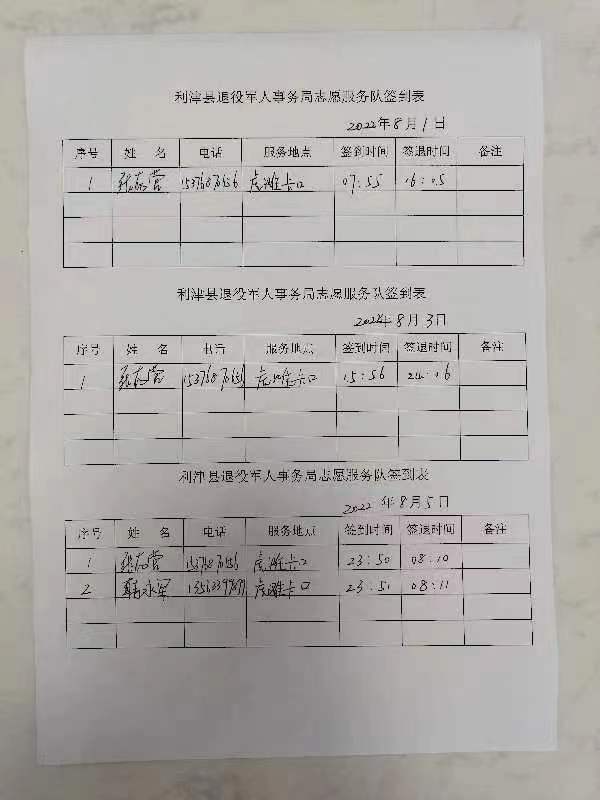 利津县退役军人事务局志愿服务队签到表
2022年8月1日
序号 姓 名 电话 服务地点 签到时间 签退时间 备注
1 虎滩卡口 07:55 16:05
利津县退役军人事务局志愿服务队签到表
2022年8月3日
序号 姓 名 电话 服务地点 签到时间 签退时间 备注
1 虎滩卡口 15:56 24:06
利津县退役军人事务局志愿服务队签到表
2022年8月5日
序号 姓 名 电话 服务地点 签到时间 签退时间 备注
1 虎滩卡口 23:50 08:10
2 韩永军 虎滩卡口 23:51 08:11